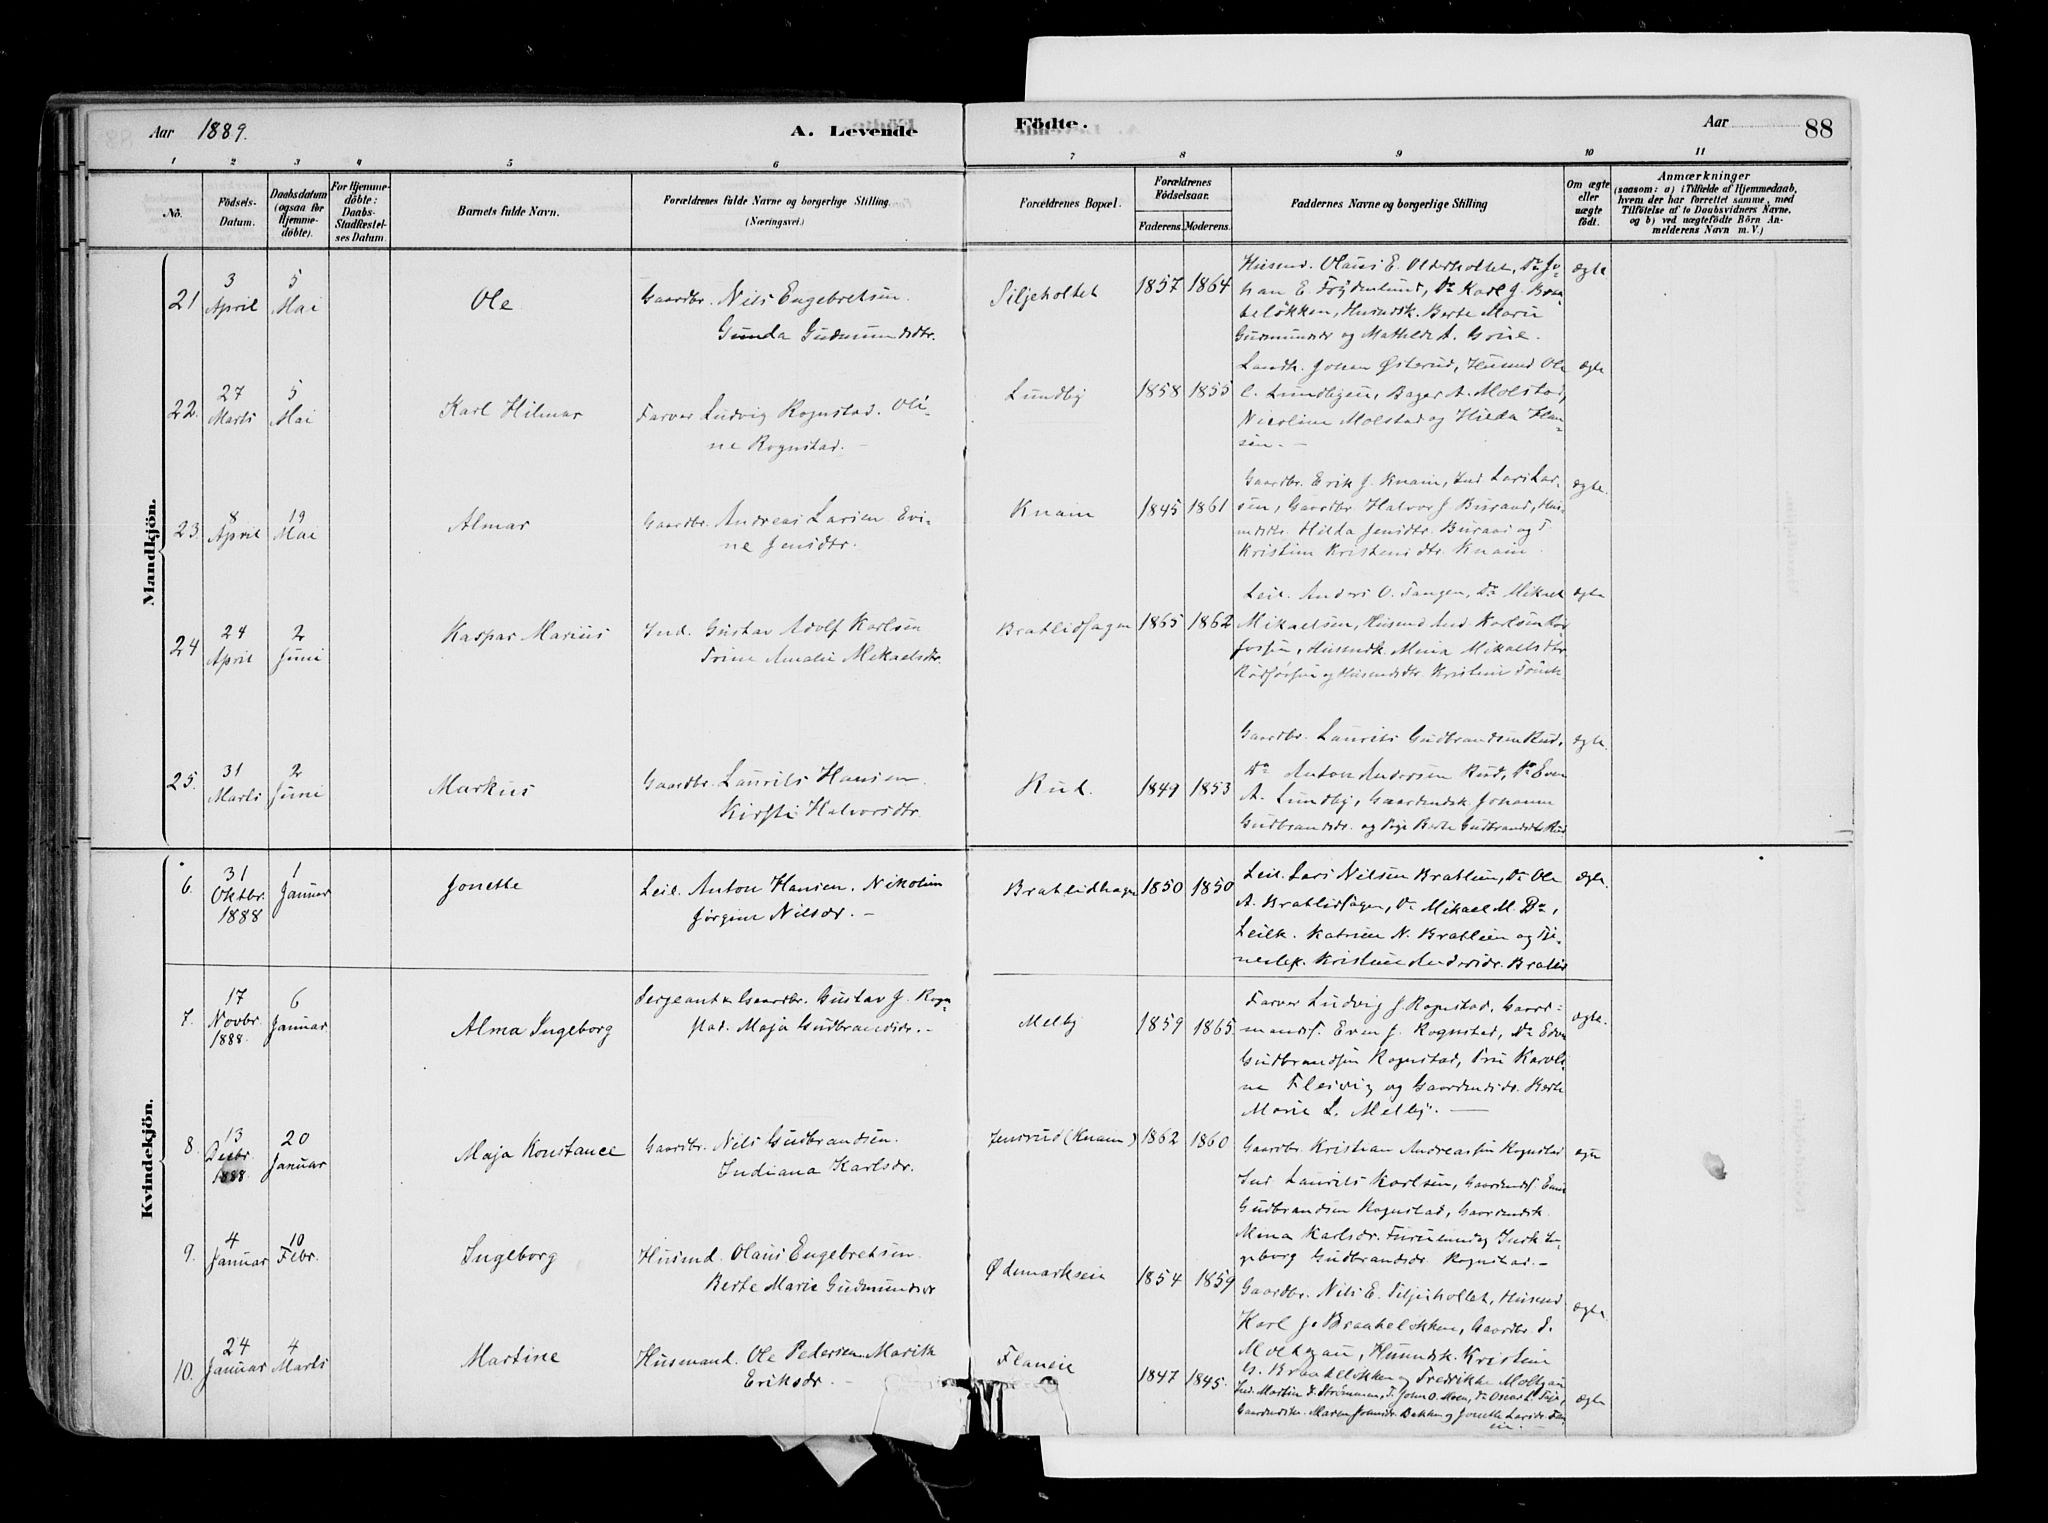 Aar 1889. A. Levende Födte. Aar 88
1 2 3 4 5 6 7 8 9 10 11
No. Födsels-Datum. Daabsdatum (ogsaa for Hjemmedöbte). For Hjemmedöbte: Daabs-Stadfæstelses Datum. Barnets fulde Navn. Forældrenes fulde Navne og borgerlige Stilling. (Næringsvei.) Forældrenes Bopæl. Forældrenes Födselsaar. Faderens. Moderens. Faddernes Navne og borgerlige Stilling Om ægte eller uægte födt. Anmærkninger (saasom: a) i Tilfælde af Hjemmedaab, hvem der har forrettet samme, med Tilföielse af to Daabsvidners Navne, og b) ved uægtefödte Börn Anmelderens Navn m. V.)
Mandkjön.
21 3 April 5 Mai Ole Gaardbr. Nils Engebretsen. Gunda Gudmundsdtr. Siljeholtet 1857 1864 Husmd. Olaus E. Olderholtet, Do Johan E. Frydenlund, Do Karl J. Braateløkken, Husmdsk. Berte Marie Gudmundsdr og Mathilde A. ægte
22. 27 Marts 5 Mai Karl Hilmar Farver Ludvig Rognstad. Oline Rognstad. - Lundby 1858 1855 Landh. Johan Østerud, Husmd Ole C. Lundbyeie, Bager A. Molstad, Nicoline Molstad og Hilda Hansen. - ægte
23. 8 April 19 Mai Almar Gaardbr. Andreas Larsen Evine Jensdtr. Knain 1845 1861 Gaardbr. Erik J. Knain, Ind Lars Larsen, Gaardbr. Halvor J. Buraas, Husmdsk. Hilda Jensdtr. Buraas og Kristine Kristensdtr. Knain. ægte.
24 24 April 2 Juni Kaspar Marius Ind. Gustav Adolf Karlsen Trine Amalie Mikaelsdtr. Bratlidhagen 1865 1862 Leil. Anders O. Tangen, Do Mikael Mikaelsen, Husmd And. Karlsen Rødfossen, Husmdk Mina Mikaelsdtr Rødfossen og Husmdsdtr. Kristine ægte
25. 31 Marts 2 Juni Markus Gaardbr. Laurits Hansen. Kirsti Halvorsdtr. Rud. 1849 1853 Gaardbr. Laurits Gudbrandsen Rud, Do Anton Andersen Rud, Do Even A. Lundby, Gaardmdsk Johanne Gudbrandsdr. og Pige Berte Gudbrandsdtr Rud ægte.
Kvindekjön.
6. 31 Oktbr. 1888 1 Januar Jonette Leil. Anton Hansen. Nikoline Jørgine Nilsdr. - Bratlidhagen 1850 1850 Leil. Lars Nilsen Bratlien, Do Ole A. Bratlidhagen, Do Mikael M. Do, Leilk. Katrine N. Bratlien og Kristine Andersdr. Bratlie ægte.
7. 17 Novbr. 1888. 6 Januar Alma Ingeborg Sergeant & Gaardbr. Gustav J. Rognstad. Maja Gudbrandsdr. - Melby 1859 1865 Farver Ludvig J. Rognstad. Gaardmandss. Even J. Rognstad, Do Edv. Gudbrandsen Rognstad, Fru Karoline Fleisvig og Gaardmdsdr. Berte Marie L. Melby. - ægte.
8. 13 Decbr. 1888 20 Januar Maja Konstance Gaardbr. Nils Gudbrandsen. Indiana Karlsdr. Jensrud (Knain) 1862 1860 Gaardbr. Kristian Andreassen Rognstad Ind Laurits Karlsen, Gaardmdss. Even Gudbrandsen Rognstad, Gaardmdsk. Mina Karlsdr. Furulund og Indk Ingeborg Gudbrandsdr. Rognstad. - ægte
9. 4 Januar 10 Febr. Ingeborg Husmd. Olaus Engebretsen. Berte Marie Gudmundsdr Ødemarkseie 1854 1859 Gaardbr. Nils E. Siljeholtet, Husmd. Karl J. Braateløkken, Gaardbr. E. Moltzau, Husmdsk. Kristine G. Braateløkken og Fredrikke Moltzau ægte
10. 24 Januar 4 Marts Martine Husmand. Ole Pedersen. Marthe Eriksdr. - Flaneie 1847 1845. Ind. Martin E. Strømmen, I. John O. Moen, Do Oscar L. Teje, Gaardmdsk. Maren Jonsdr. Bakken og Jonette Larsdr. Flaneie. - ægte